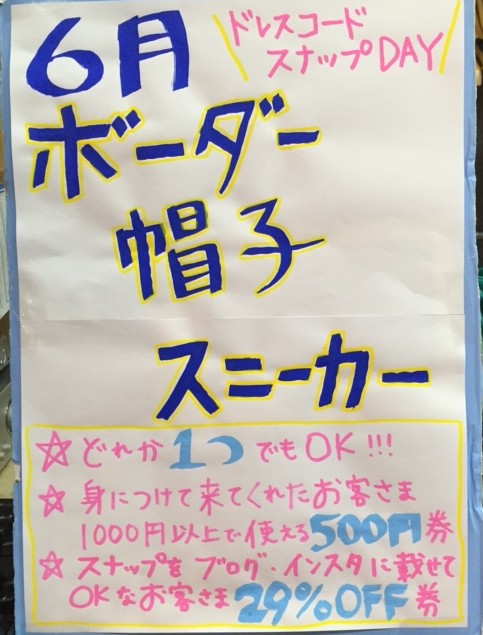 6月
ドレスコード
スナップDAY
ボーダー
帽子
スニーカー
☆ どれか1つでもOK!!!
☆ 身につけて来てくれたお客さま
1000円以上で使える500円券
☆ スナップをブログ・インスタに載せて
OKなお客さま29%OFF券